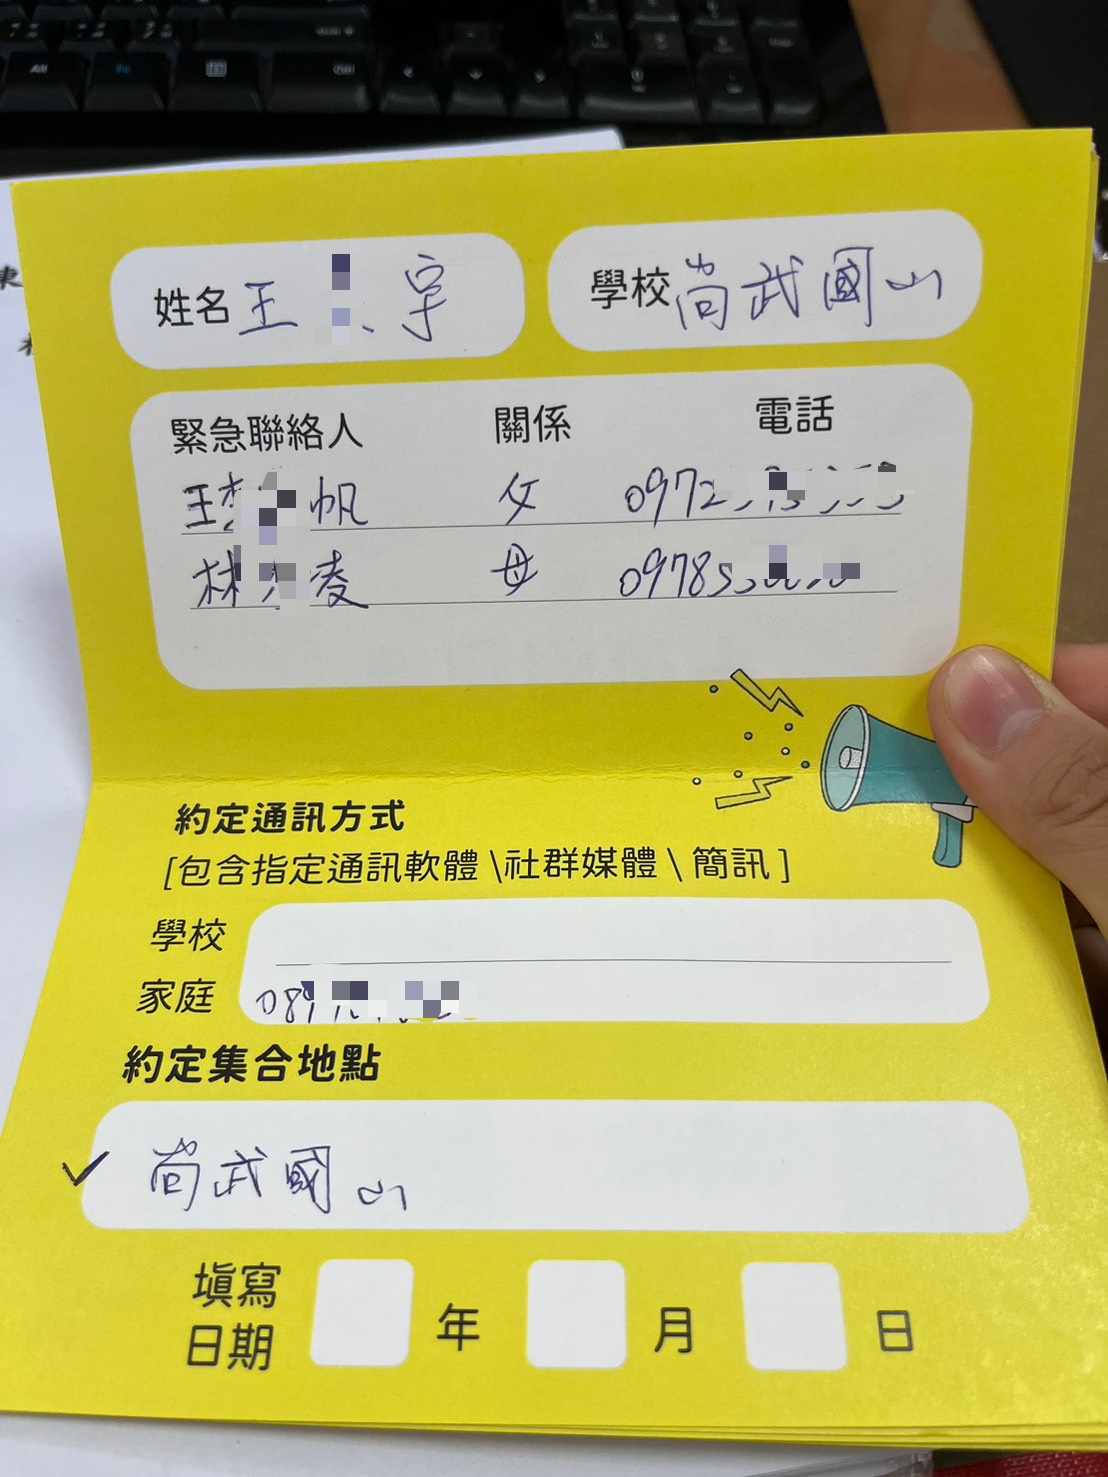 姓名 王 宇
學校 尚武國小
緊急聯絡人 關係 電話
王 帆 父 0972
林 凌 母 0978
約定通訊方式
[包含指定通訊軟體\社群媒體\簡訊]
學校
家庭 089
約定集合地點
✓ 尚武國小
填寫日期 年 月 日